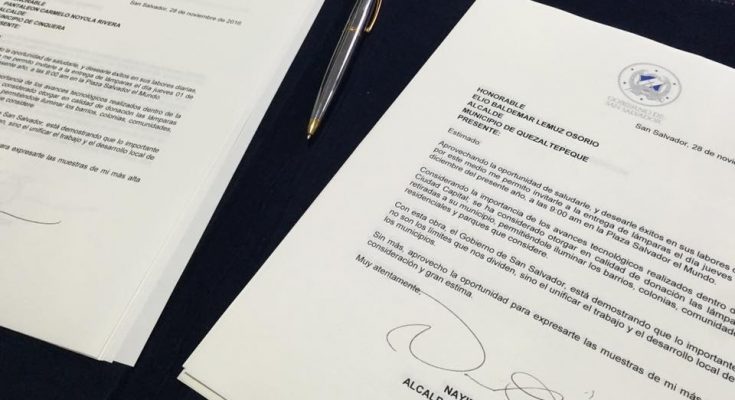 HONORABLE
PANTALEON CARMELO NOYOLA RIVERA
ALCALDE
MUNICIPIO DE CINQUERA
PRESENTE:
San Salvador, 28 de noviembre de 2016
la oportunidad de saludarle, y desearle éxitos en sus labores diarias,
me permito invitarle a la entrega de lámparas el día jueves 01 de
año, a las 9:00 am en la Plaza Salvador el Mundo.
importancia de los avances tecnológicos realizados dentro de la
considerado otorgar en calidad de donación las lámparas
permitiéndole iluminar los barrios, colonias, comunidades,
considere.
de San Salvador, está demostrando que lo importante
sino el unificar el trabajo y el desarrollo local de
para expresarle las muestras de mi más alta
GOBIERNO DE
SAN SALVADOR
San Salvador, 28 de nov
HONORABLE
ELIO BALDEMAR LEMUZ OSORIO
ALCALDE
MUNICIPIO DE QUEZALTEPEQUE
PRESENTE:
Estimado:
Aprovechando la oportunidad de saludarle, y desearle éxitos en sus labores d
por este medio me permito invitarle a la entrega de lámparas el día jueves
diciembre del presente año, a las 9:00 am en la Plaza Salvador el Mundo.
Considerando la importancia de los avances tecnológicos realizados dentro d
Ciudad Capital: se ha considerado otorgar en calidad de donación las lámpa
retiradas a su municipio, permitiéndole iluminar los barrios, colonias, comunidade
residenciales y parques que considere.
Con esta obra, el Gobierno de San Salvador, está demostrando que lo importante
no son los límites que nos dividen, sino el unificar el trabajo y el desarrollo local de
los municipios.
Sin más, aprovecho la oportunidad para expresarle las muestras de mi más a
consideración y gran estima.
Muy atentamente,
NAYI
ALCALD